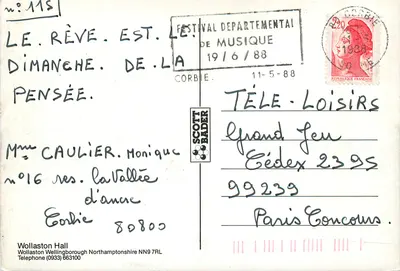 n° 115
LE. RÊVE. EST. LE.
DIMANCHE. DE. LA
PENSÉE.
Mme CAULIER. Monique
n°16 res. la Vallée
d'ancre
Corbie 80800
Wollaston Hall
Wollaston Wellingborough Northamptonshire NN9 7RL
Telephone (0933) 663100
SCOTT
BADER
FESTIVAL DEPARTEMENTAL
DE MUSIQUE
19/6/88
CORBIE. 11-5-88
80 CORBIE
1988
2,20
TÉLÉ-LOISIRS
Grand Jeu
Cédex 2395
99239
Paris Concours.